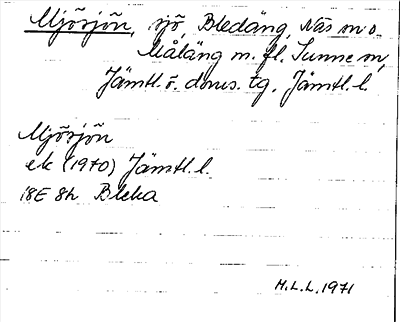 Mjösjön, sjö, Bledäng, Näs sn o.
Måläng m. fl. Sunne sn,
Jämtl. ö. doms. tg. Jämtl. l.
Mjösjön
ek (1970) Jämtl. l.
18E 8h Bleka
H.L.L. 1971